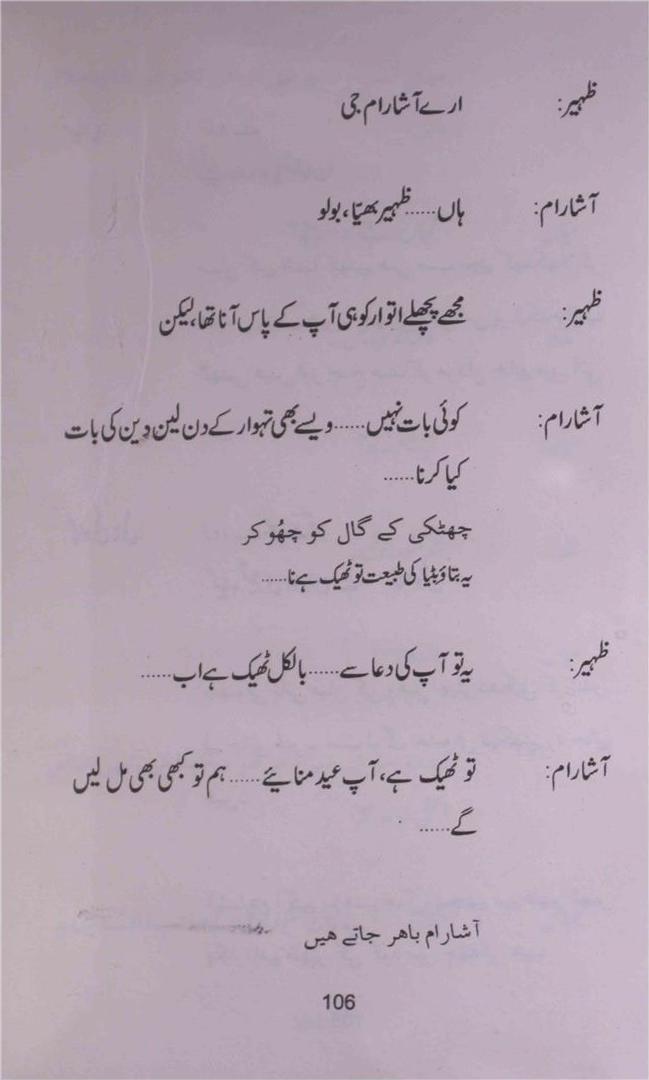 ظہیر: ارے آشارام جی
آشارام: ہاں......ظہیر بھیّا، بولو
ظہیر: مجھے پچھلے اتوار کو ہی آپ کے پاس آنا تھا، لیکن
آشارام: کوئی بات نہیں......ویسے بھی تہوار کے دن لین دین کی بات
کیا کرنا......
چھٹکی کے گال کو چھُو کر
یہ بتاؤ بٹیا کی طبیعت تو ٹھیک ہے نا......
ظہیر: یہ تو آپ کی دعا سے......بالکل ٹھیک ہے اب......
آشارام: تو ٹھیک ہے، آپ عید منائیے......ہم تو کبھی بھی مل لیں
گے......
آشارام باہر جاتے ہیں
106